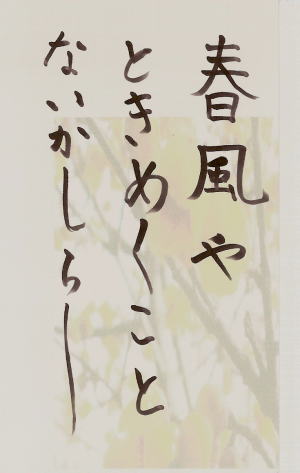 春風や
ときめくこと
ないかしらー